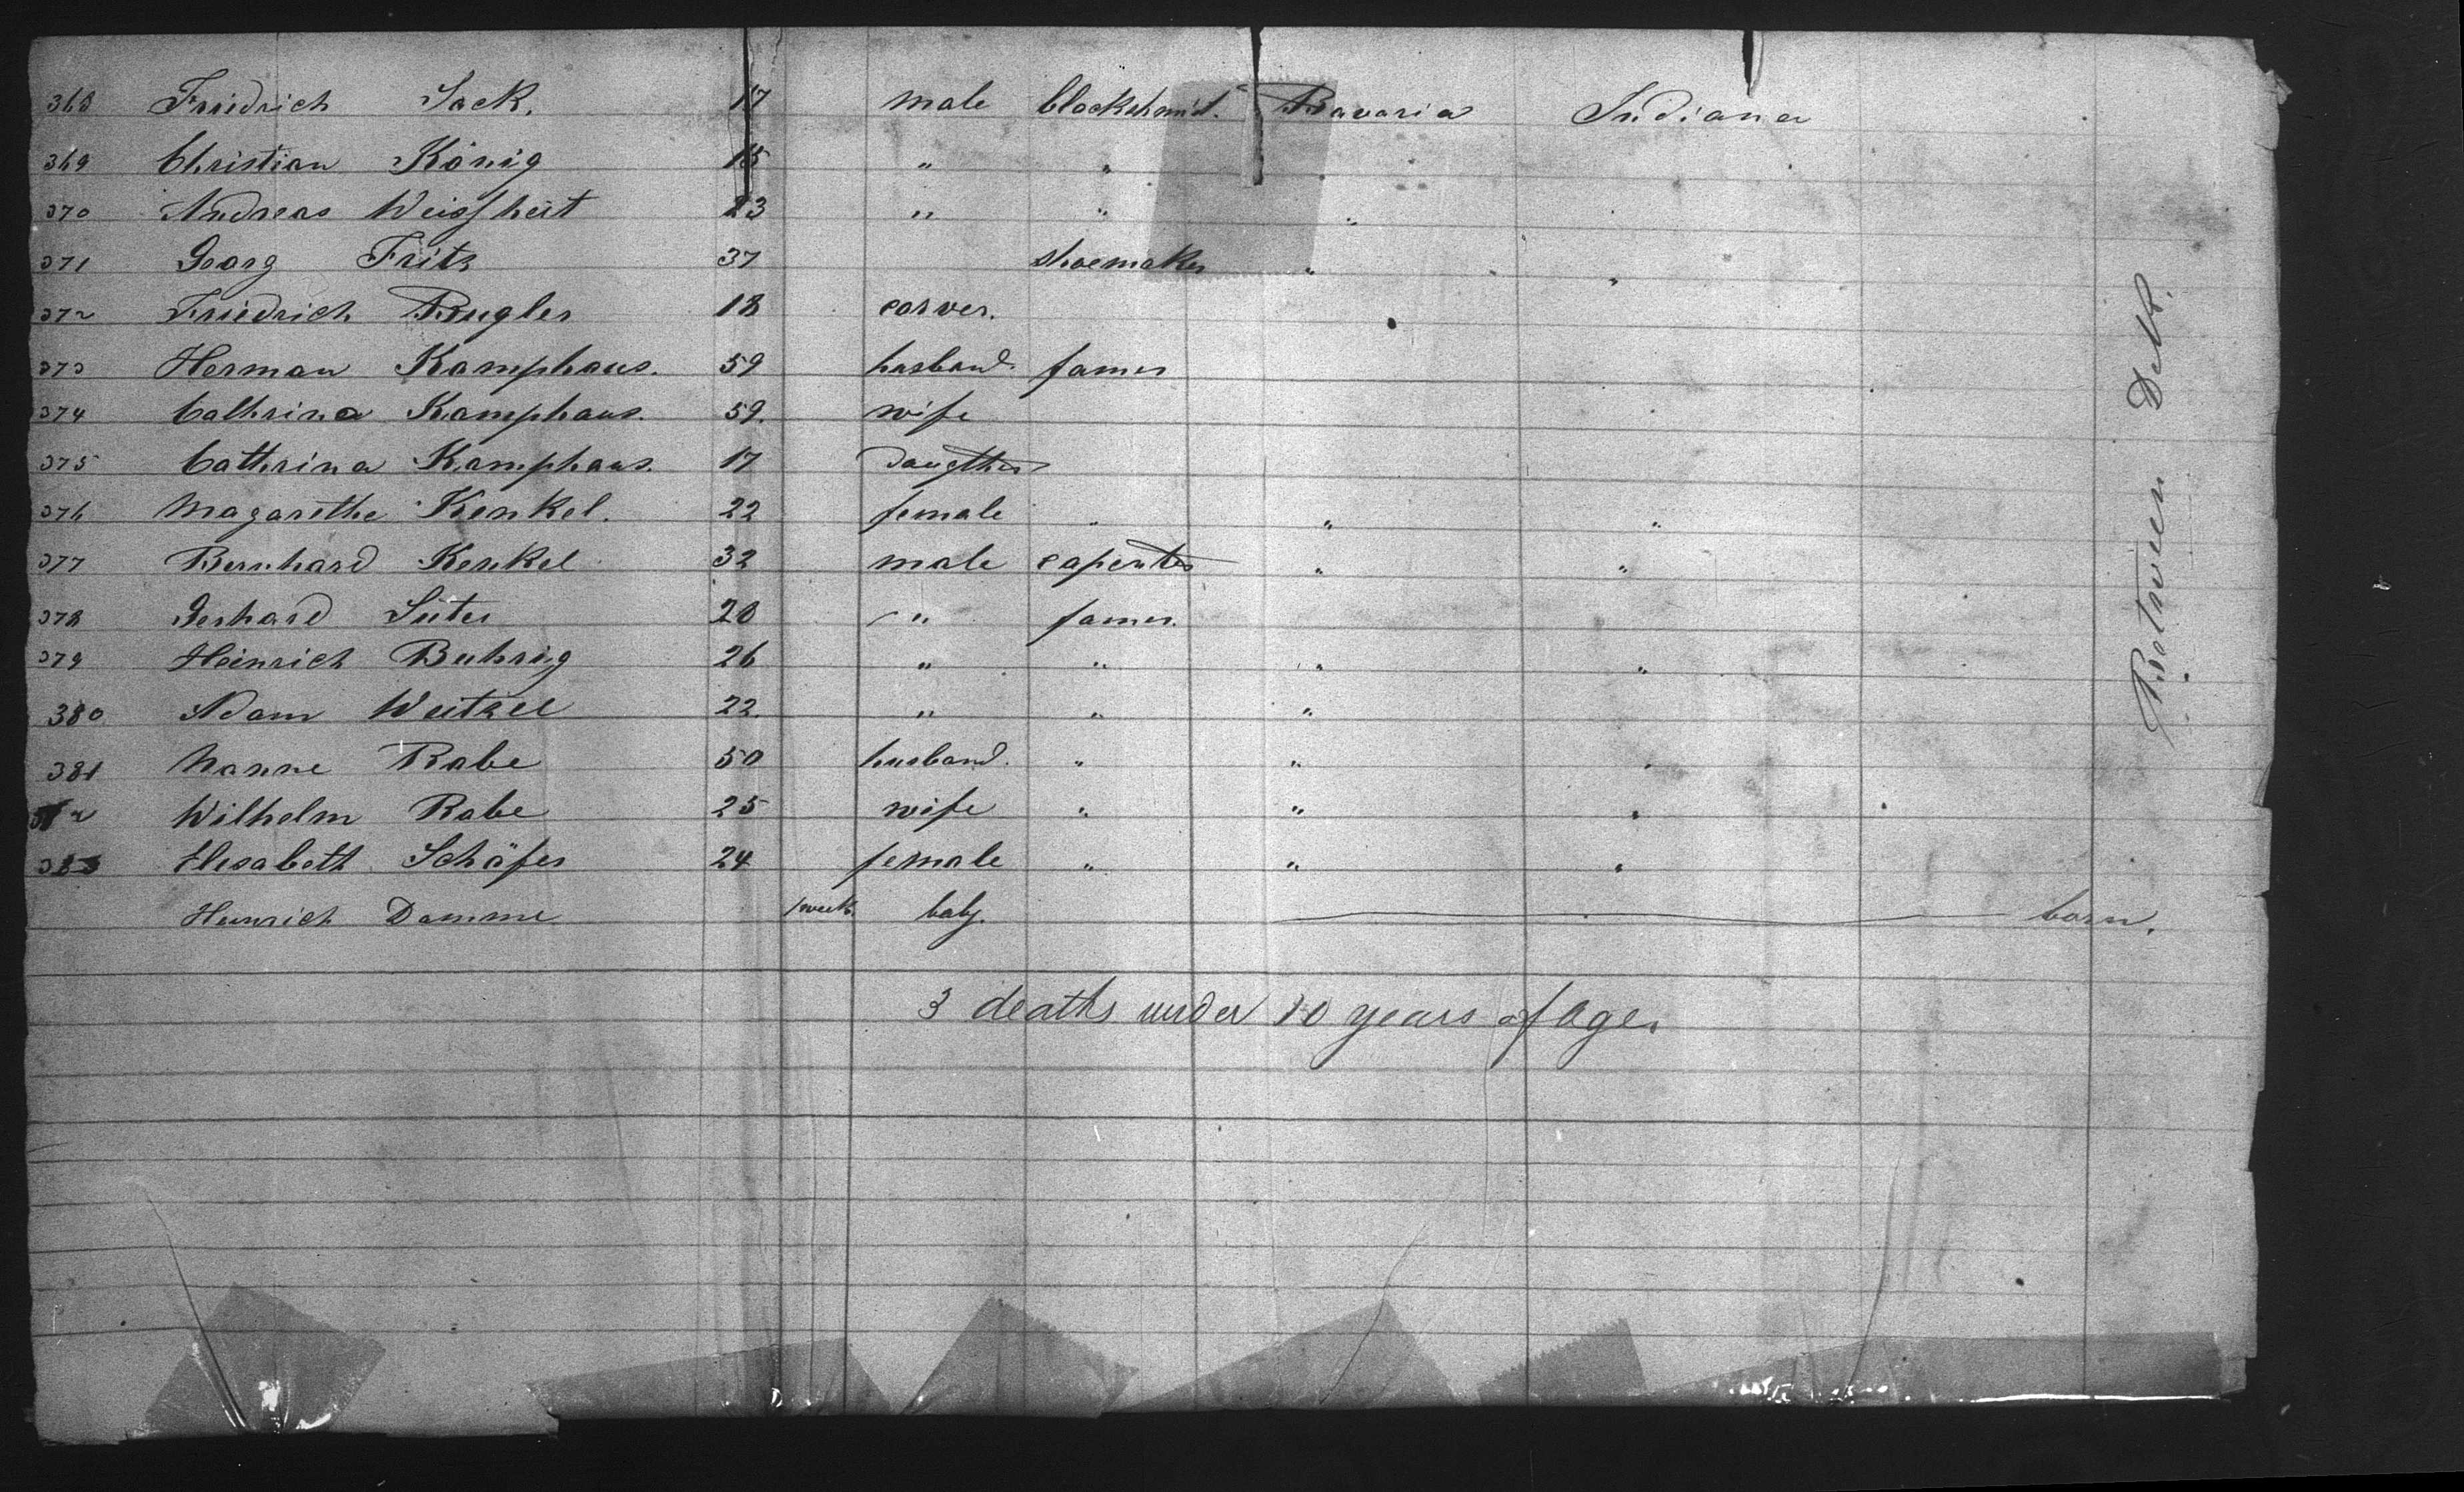 368 Friedrich Sack. 17 male blackschmit. Bavaria Indiana
369 Christian König 15 " "
370 Andreas Weissheit 23 " " "
371 Georg Fritz 37 shoemaker " "
372 Friedrich Bugler 18 carver.
373 Herman Kamphaus. 59 husband famer
374 Cathrina Kamphaus. 59. wife
375 Cathrina Kamphaus. 17 Daugther
376 Magarethe Kenkel. 22 female " " "
377 Bernhard Kenkel 32 male capenter " "
378 Gerhard Sieter 20 " famer.
379 Heinrich Buhrig 26 " " " "
380 Adam Weitzel 22. " " "
381 Nanne Rabe 50 husband. " " "
Wilhelm Rabe 25 wife " " "
383 Elesabeth Schäfer 24 female " " "
Heinrich Damme 1 week. baby. born.
3 deaths under 10 years of Age.
Between Deck.